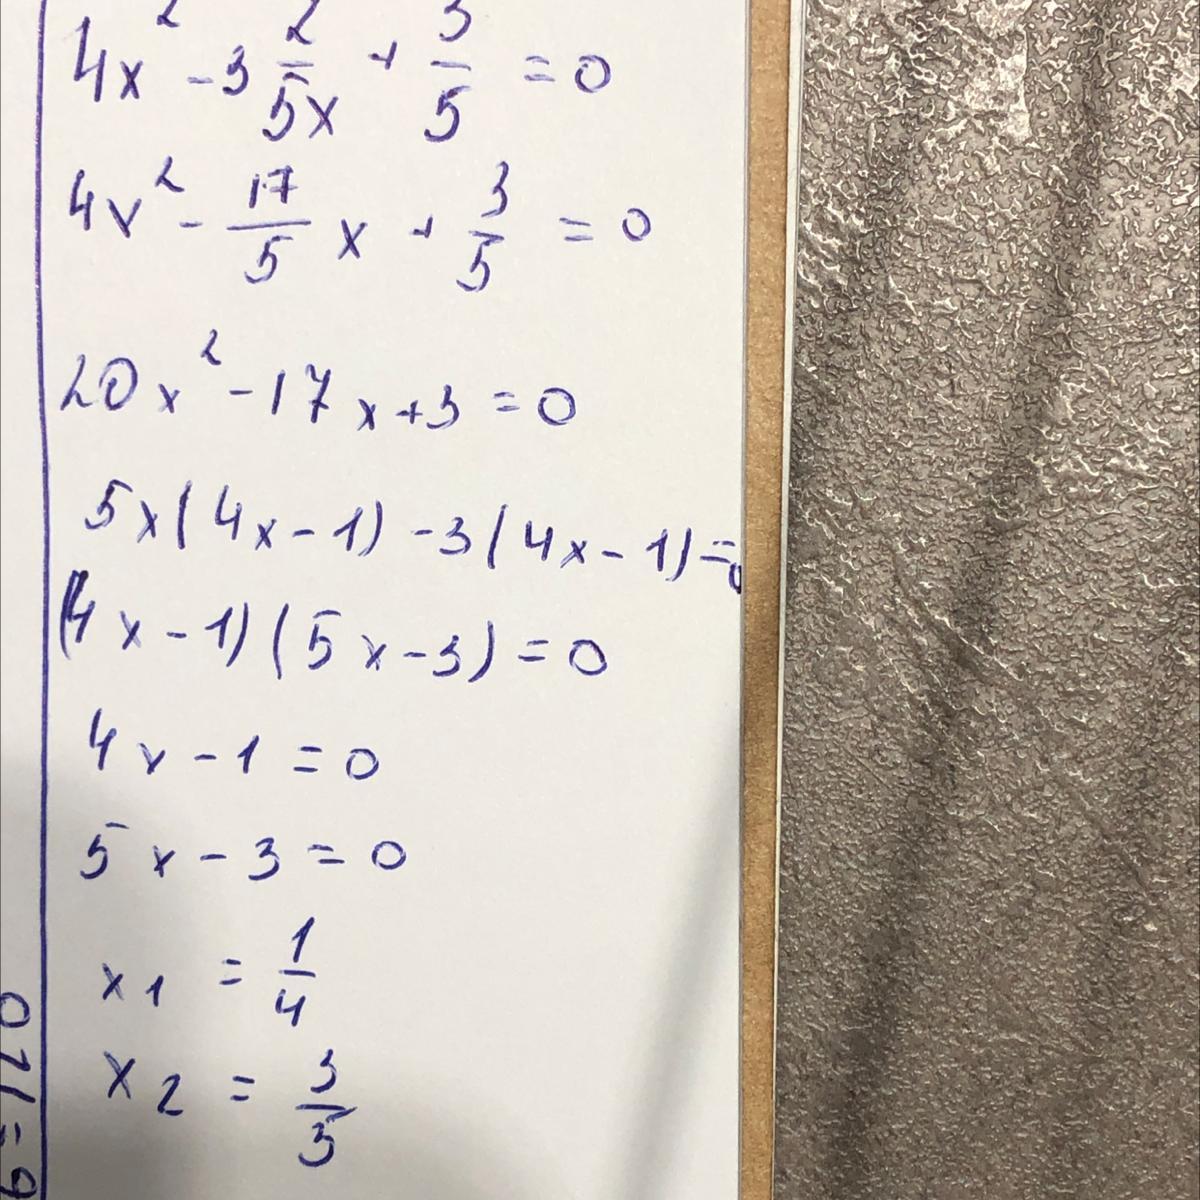 4x² - 3 2/5x + 3/5 = 0
4x² - 17/5 x + 3/5 = 0
20x² - 17x + 3 = 0
5x(4x - 1) - 3(4x - 1) = 0
(4x - 1)(5x - 3) = 0
4x - 1 = 0
5x - 3 = 0
x1 = 1/4
x2 = 3/5